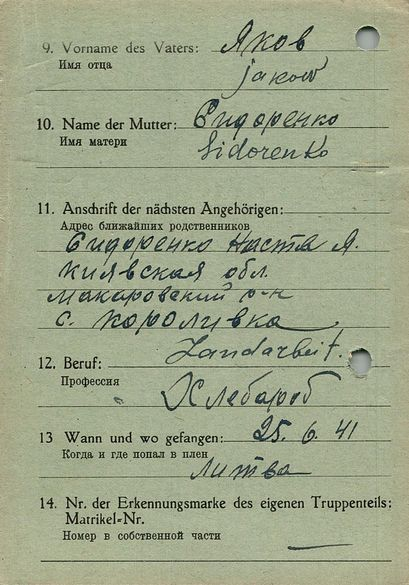 9. Vorname des Vaters: Яков
Имя отца
Jakow
10. Name der Mutter: Сидоренко
Имя матери
Sidorenko
11. Anschrift der nächsten Angehörigen:
Адрес ближайших родственников
Сидоренко Наста Я.
Киявская обл.
Макаровский р-н
с. Короливка
Landarbeit.
12. Beruf:
Профессия
Хлебароб
13 Wann und wo gefangen: 25. 6. 41
Когда и где попал в плен
Литва
14. Nr. der Erkennungsmarke des eigenen Truppenteils:
Matrikel-Nr.
Номер в собственной части —